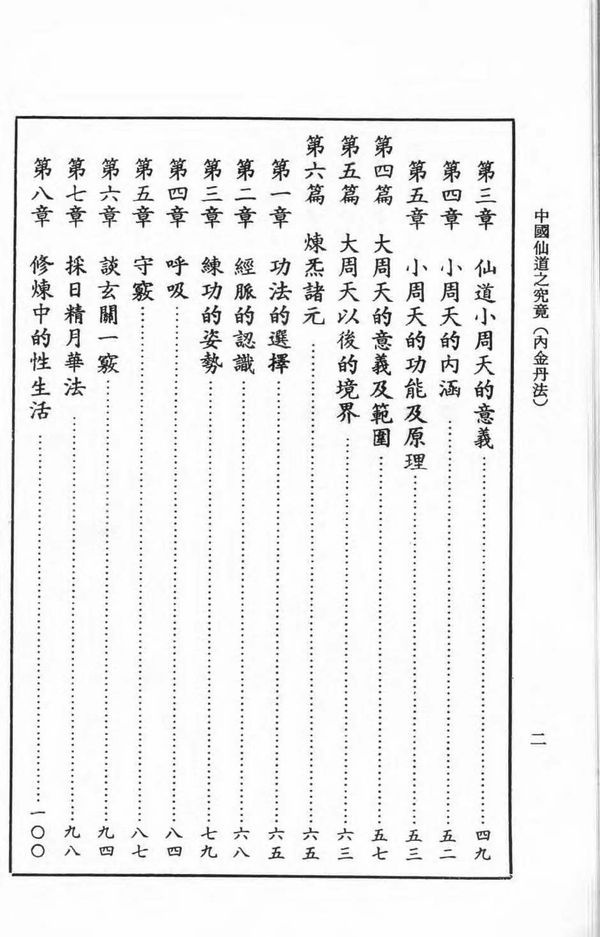 中國仙道之究竟（內金丹法）
二
第三章　仙道小周天的意義……四九
第四章　小周天的內涵……五二
第五章　小周天的功能及原理……五三
第四篇　大周天的意義及範圍……五七
第五篇　大周天以後的境界……六三
第六篇　煉炁諸元……六五
第一章　功法的選擇……六五
第二章　經脈的認識……六八
第三章　練功的姿勢……七九
第四章　呼吸……八四
第五章　守竅……八七
第六章　談玄關一竅……九四
第七章　採日精月華法……九八
第八章　修煉中的性生活……一〇〇